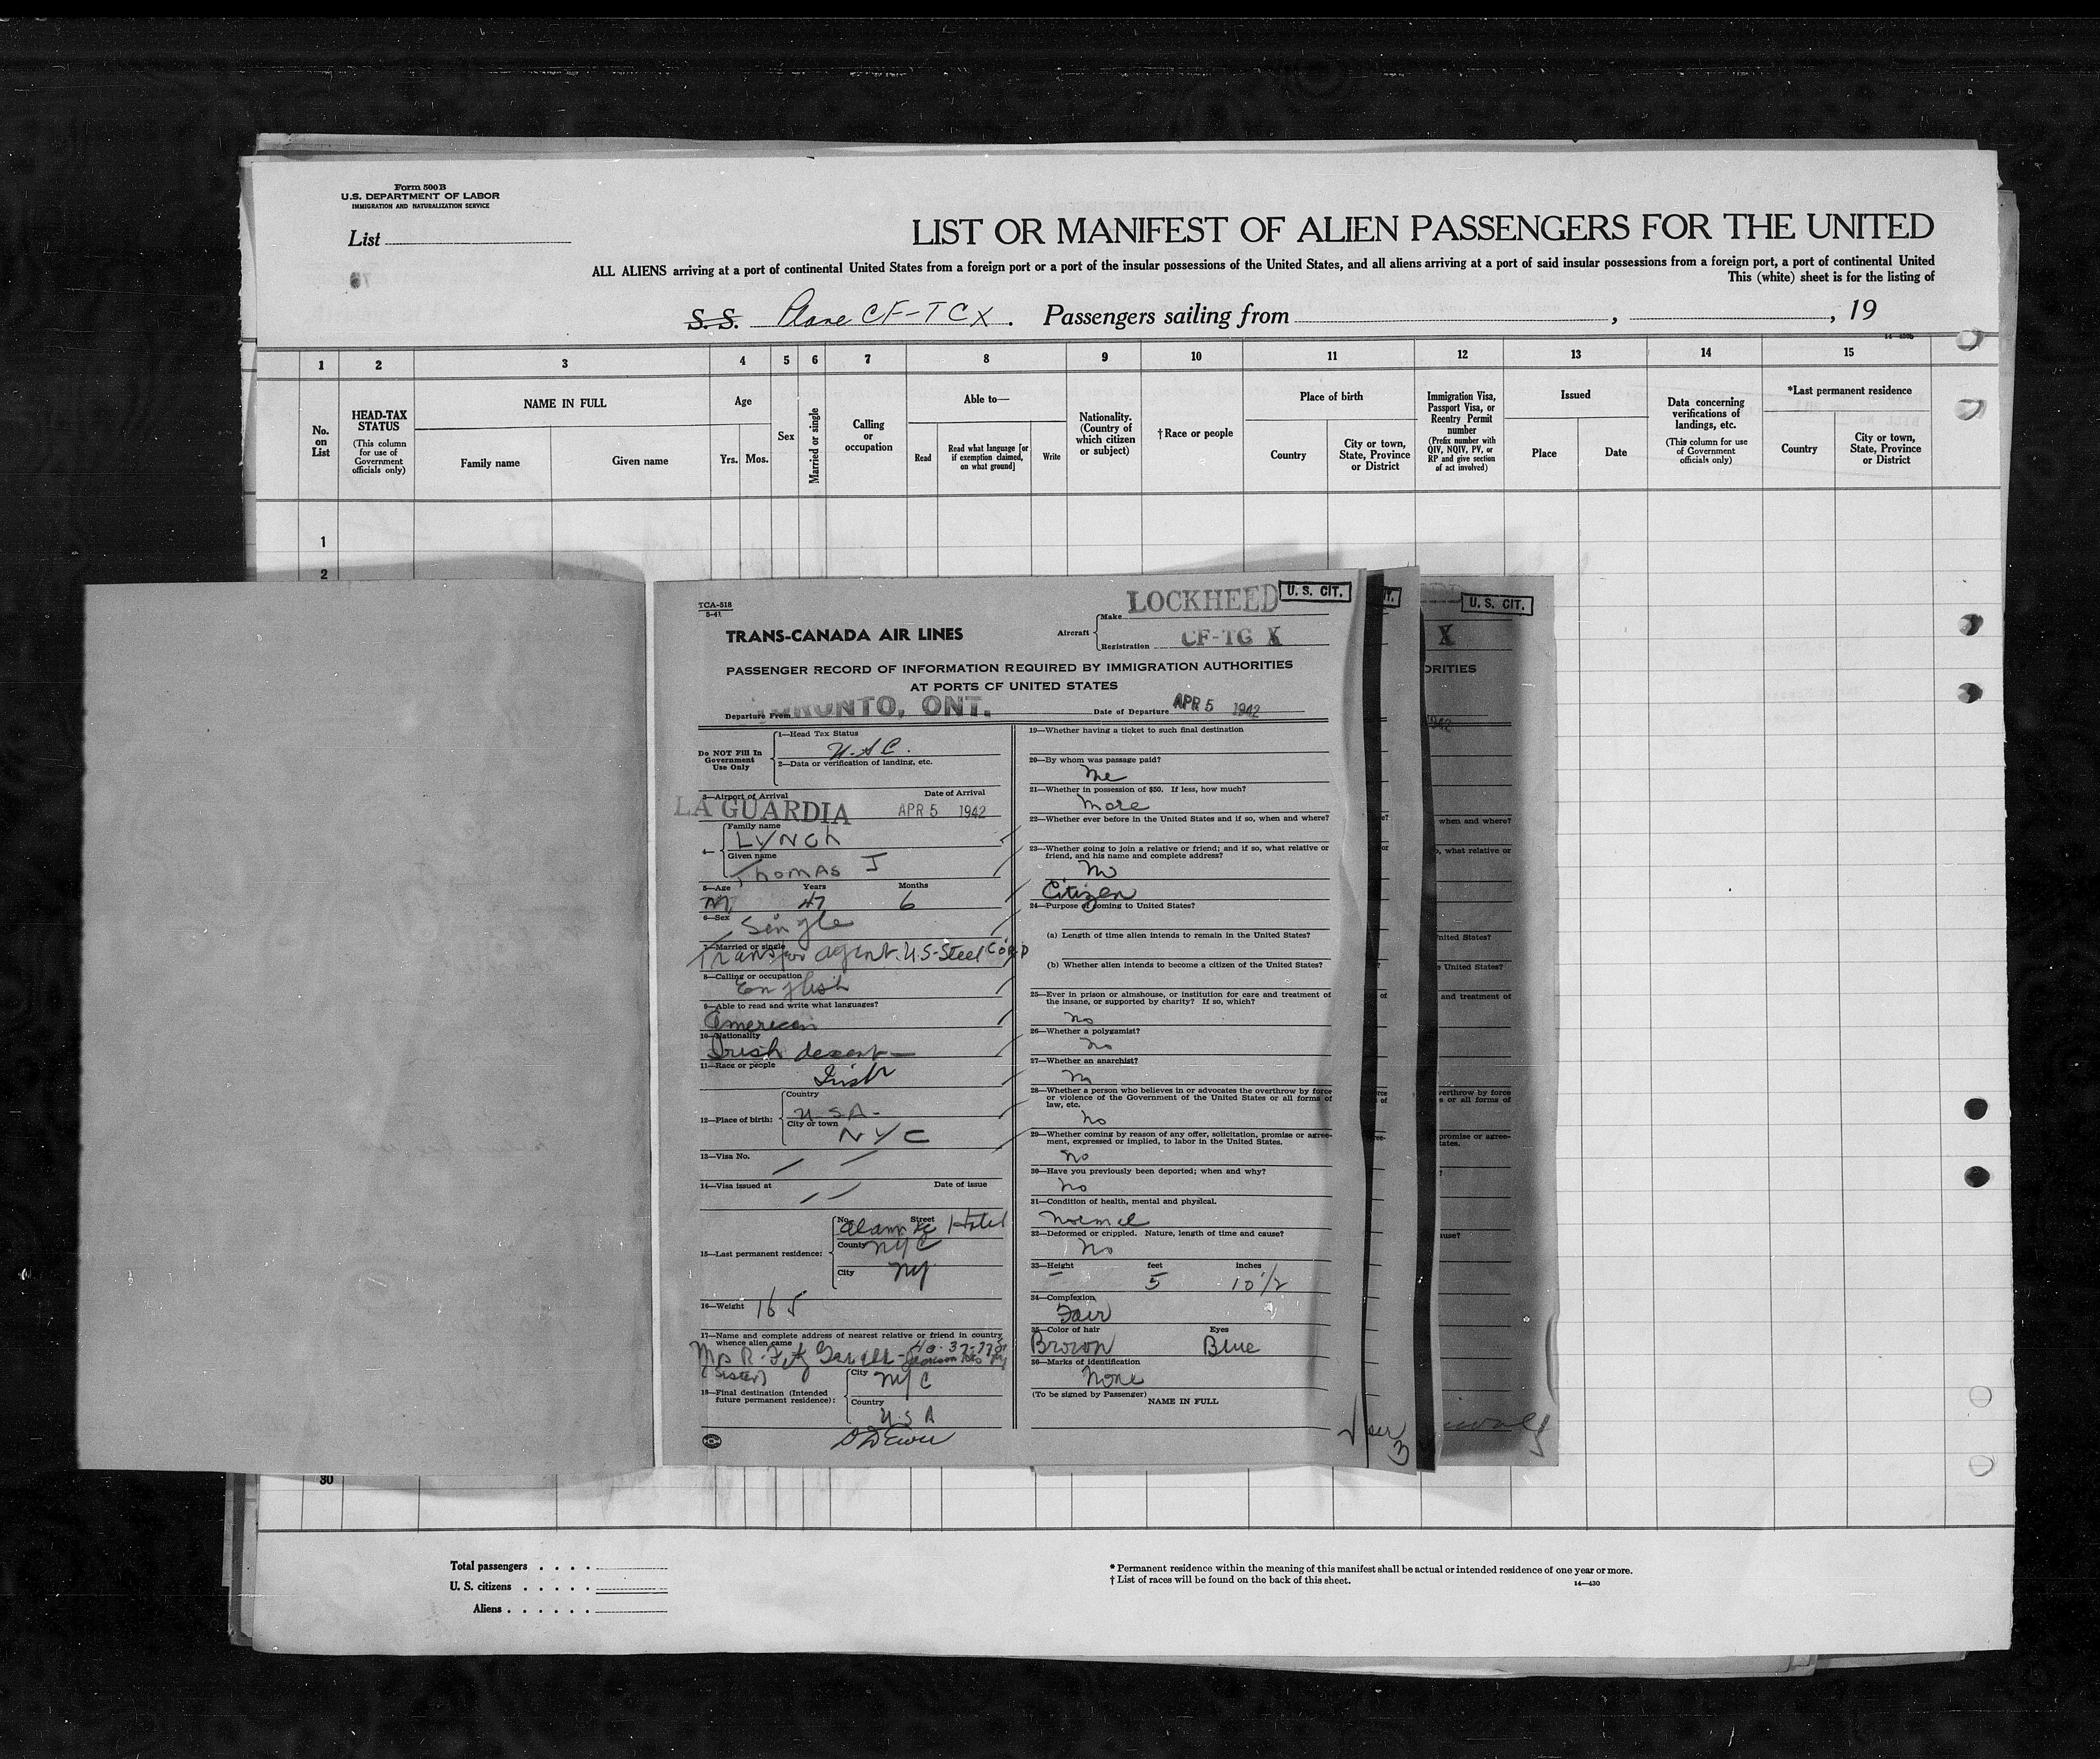 Form 500B
U.S. DEPARTMENT OF LABOR
IMMIGRATION AND NATURALIZATION SERVICE
List
LIST OR MANIFEST OF ALIEN PASSENGERS FOR THE UNITED
ALL ALIENS arriving at a port of continental United States from a foreign port or a port of the insular possessions of the United States, and all aliens arriving at a port of said insular possessions from a foreign port, a port of continental United
This (white) sheet is for the listing of
S.S. Plane CF-TCX. Passengers sailing from , , 19
1 2 3 4 5 6 7 8 9 10 11 12 13 14 15
No. on List
HEAD-TAX STATUS
(This column for use of Government officials only)
NAME IN FULL
Family name
Given name
Age
Yrs. Mos.
Sex
Married or single
Calling or occupation
Able to—
Read
Read what language [or if exemption claimed, on what ground]
Write
Nationality. (Country of which citizen or subject)
†Race or people
Place of birth
Country
City or town, State, Province or District
Immigration Visa, Passport Visa, or Reentry Permit number
(Prefix number with QIV, NQIV, PV, or RP and give section of act involved)
Issued
Place
Date
Data concerning verifications of landings, etc.
(This column for use of Government officials only)
*Last permanent residence
Country
City or town, State, Province or District
1
2
TCA-518
5-41
TRANS-CANADA AIR LINES
Aircraft
Make LOCKHEED
U. S. CIT.
Registration CF-TG X
PASSENGER RECORD OF INFORMATION REQUIRED BY IMMIGRATION AUTHORITIES
AT PORTS OF UNITED STATES
Departure From TORONTO, ONT.
Date of Departure APR 5 1942
Do NOT Fill In
Government
Use Only
1—Head Tax Status
U.S.C.
2—Data or verification of landing, etc.
3—Airport of Arrival Date of Arrival
LA GUARDIA APR 5 1942
4—
Family name
LYNCh
Given name
ThomAs J
5—Age Years Months
M 47 6
6—Sex
Single
7—Married or single
Transfor agent. U.S-Steel Corp
8—Calling or occupation
English
9—Able to read and write what languages?
American
10—Nationality
Irish desent
11—Race or people
Irish
12—Place of birth:
Country
U.S.A-
City or town
NYC
13—Visa No.
14—Visa issued at Date of issue
15—Last permanent residence:
No. Street
Hotel
County NYC
City NY
16—Weight 165
17—Name and complete address of nearest relative or friend in country
whence alien came
Mrs R. Fitz
(Sister)
18—Final destination (Intended
future permanent residence):
City NYC
Country
USA
19—Whether having a ticket to such final destination
20—By whom was passage paid?
Me
21—Whether in possession of $50. If less, how much?
More
22—Whether ever before in the United States and if so, when and where?
23—Whether going to join a relative or friend; and if so, what relative or
friend, and his name and complete address?
No
Citizen
24—Purpose of coming to United States?
(a) Length of time alien intends to remain in the United States?
(b) Whether alien intends to become a citizen of the United States?
25—Ever in prison or almshouse, or institution for care and treatment of
the insane, or supported by charity? If so, which?
no
26—Whether a polygamist?
no
27—Whether an anarchist?
no
28—Whether a person who believes in or advocates the overthrow by force
or violence of the Government of the United States or all forms of
law, etc.
no
29—Whether coming by reason of any offer, solicitation, promise or agree-
ment, expressed or implied, to labor in the United States.
no
30—Have you previously been deported; when and why?
no
31—Condition of health, mental and physical.
Normal
32—Deformed or crippled. Nature, length of time and cause?
No
33—Height feet inches
5 10 1/2
34—Complexion
Fair
35—Color of hair Eyes
Brown Blue
36—Marks of identification
None
(To be signed by Passenger)
NAME IN FULL
3
U. S. CIT.
X
ORITIES
1942
when and where?
o, what relative or
United States?
e United States?
and treatment of
verthrow by force
s or all forms of
promise or agree-
tates.
ause?
30
Total passengers
U. S. citizens
Aliens
* Permanent residence within the meaning of this manifest shall be actual or intended residence of one year or more.
† List of races will be found on the back of this sheet.
14—430